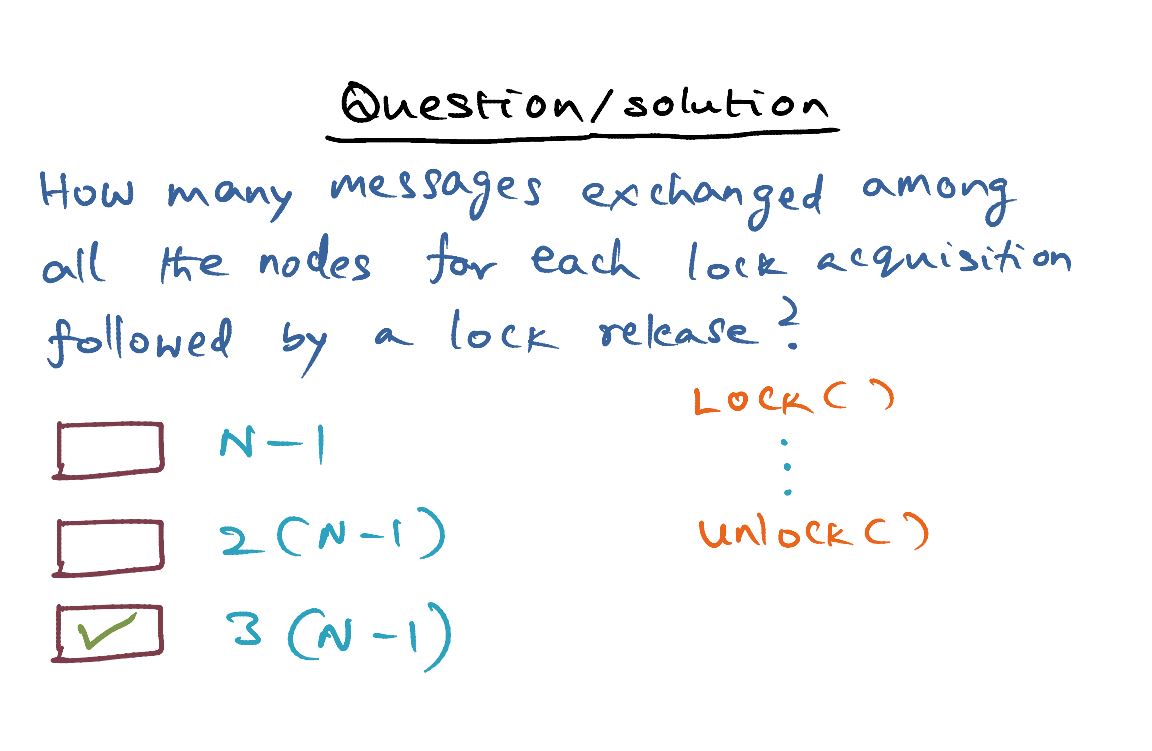 Question/solution
How many messages exchanged among
all the nodes for each lock acquisition
followed by a lock release?
LOCK()
N-1
2(N-1)
unlock()
3(N-1)